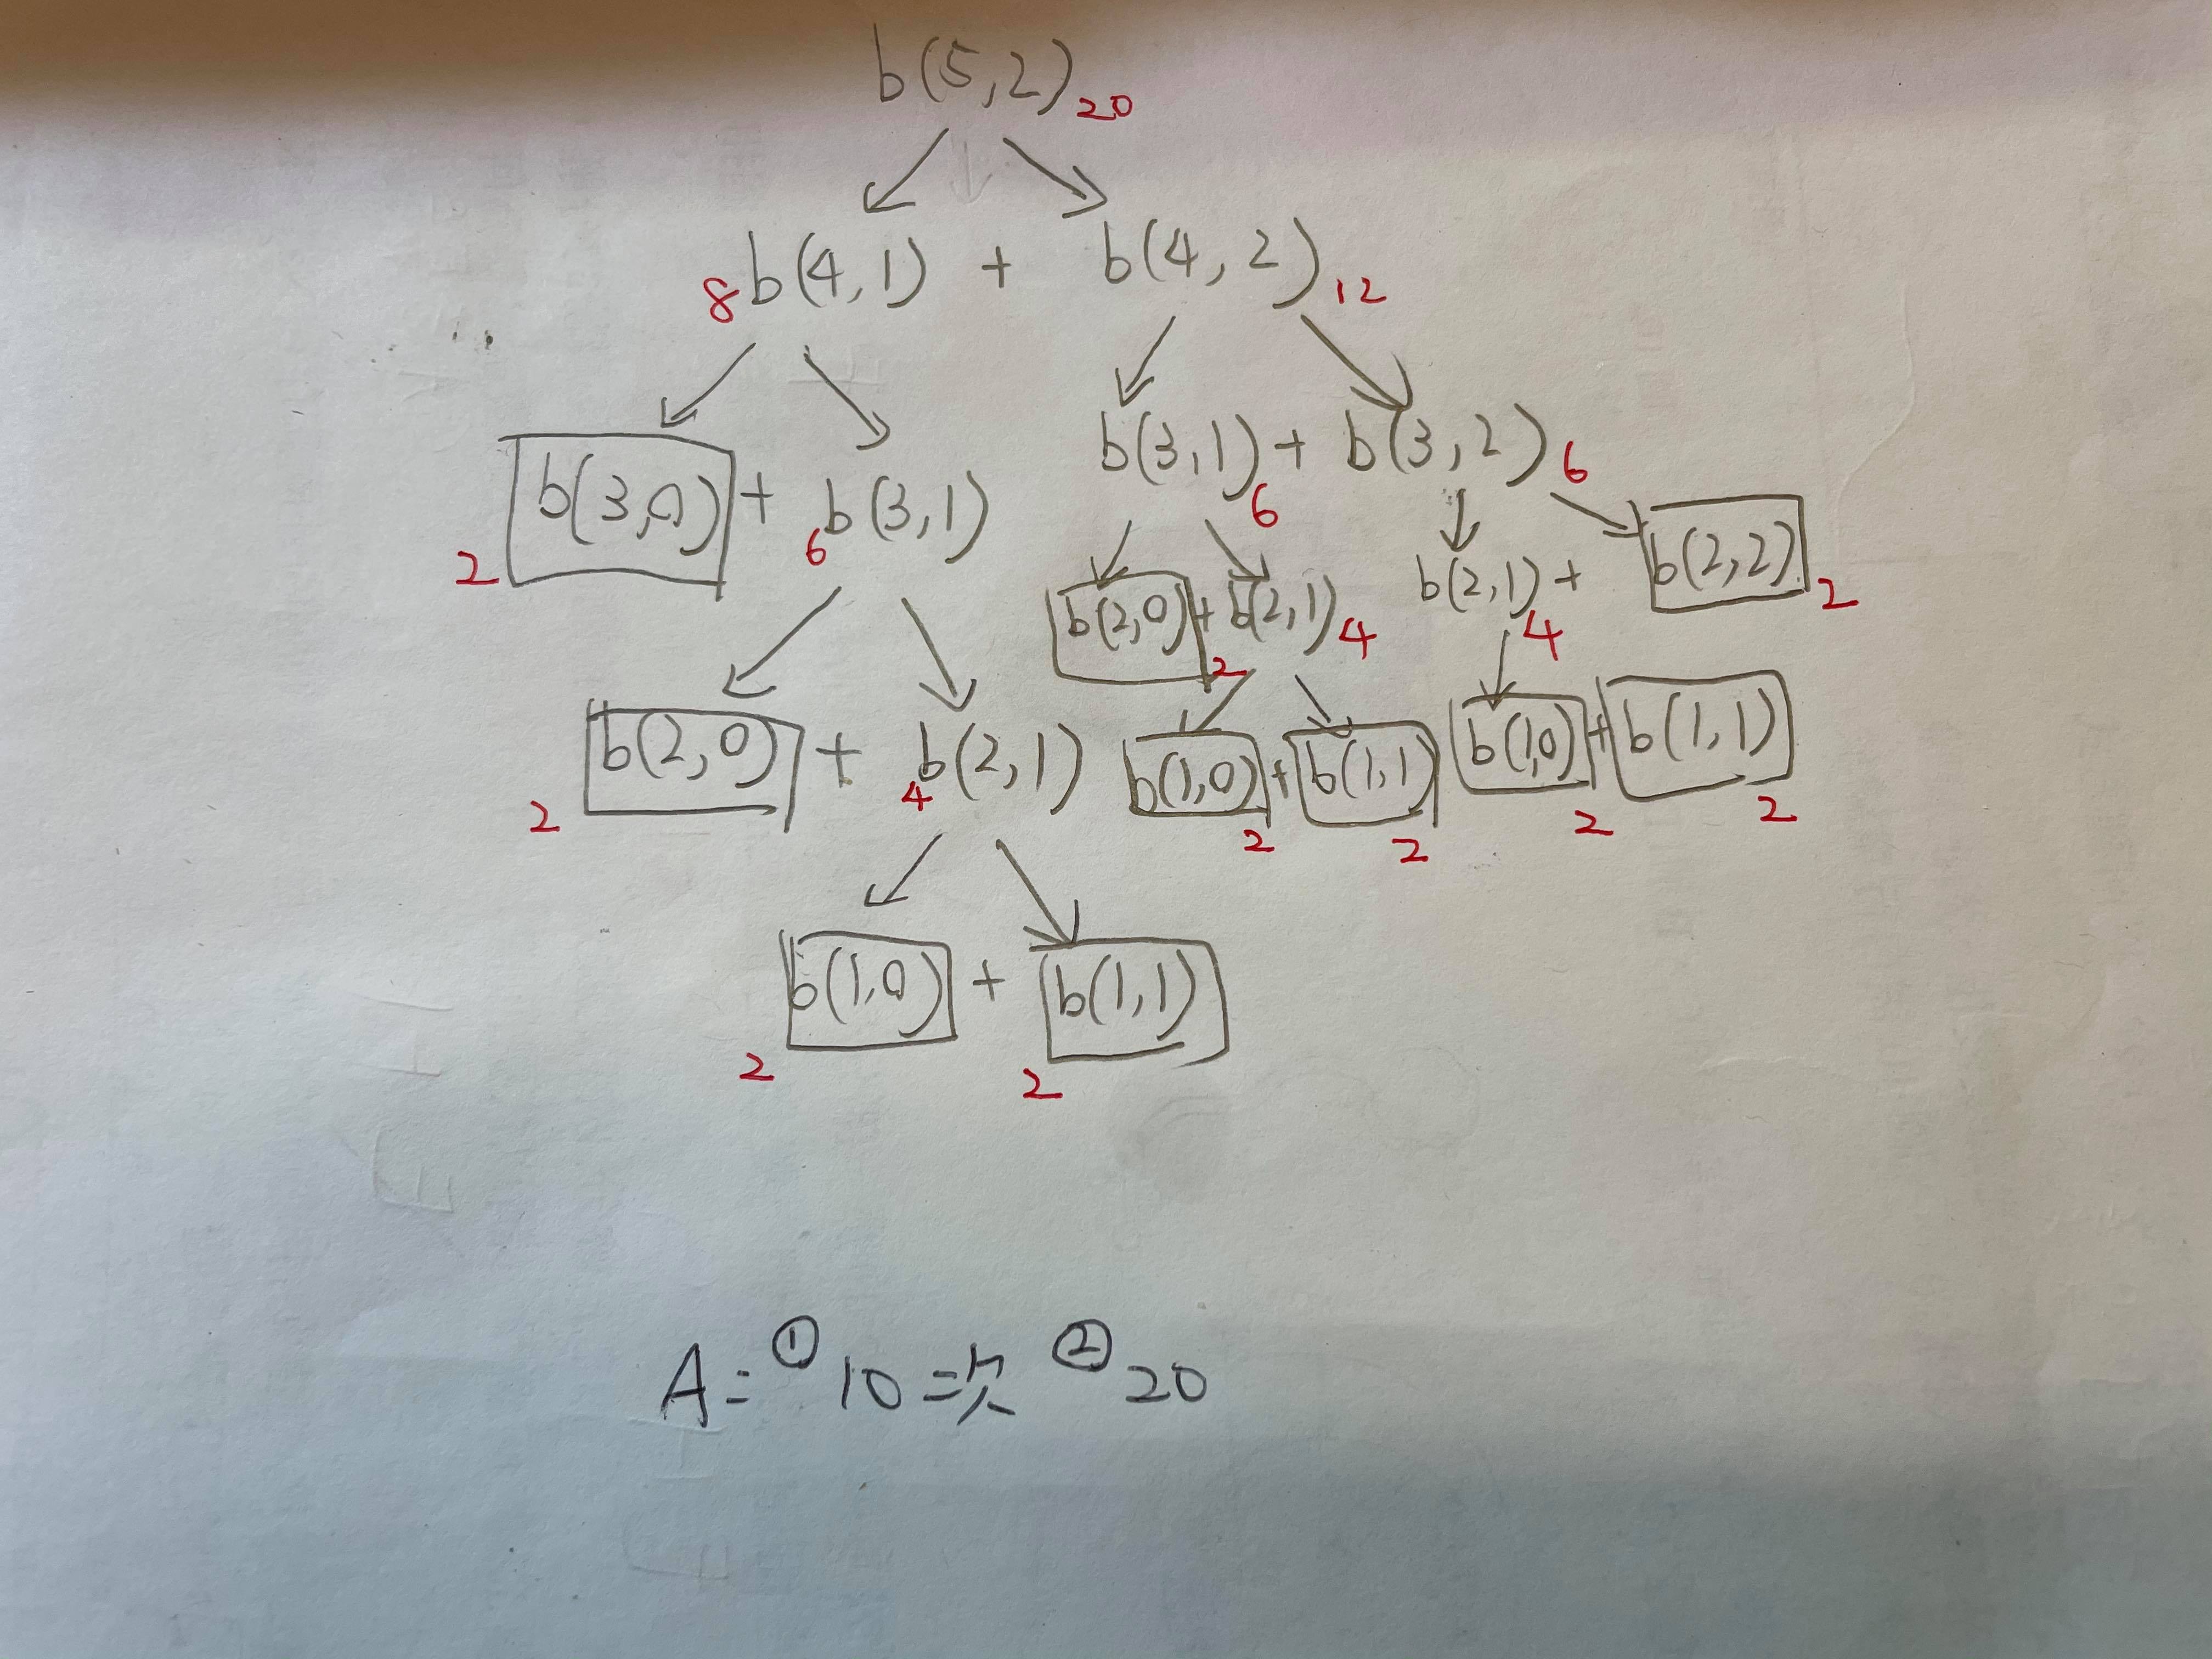 b(5,2) 20
8 b(4,1) + b(4,2) 12
b(3,1) 6 + b(3,2) 6
2 b(3,0) + 6 b(3,1)
b(2,0) 2 + b(2,1) 4 b(2,1) 4 + b(2,2) 2
2 b(2,0) + 4 b(2,1) b(1,0) 2 + b(1,1) 2 b(1,0) 2 + b(1,1) 2
2 b(1,0) + 2 b(1,1)
A= ① 10 ② 20